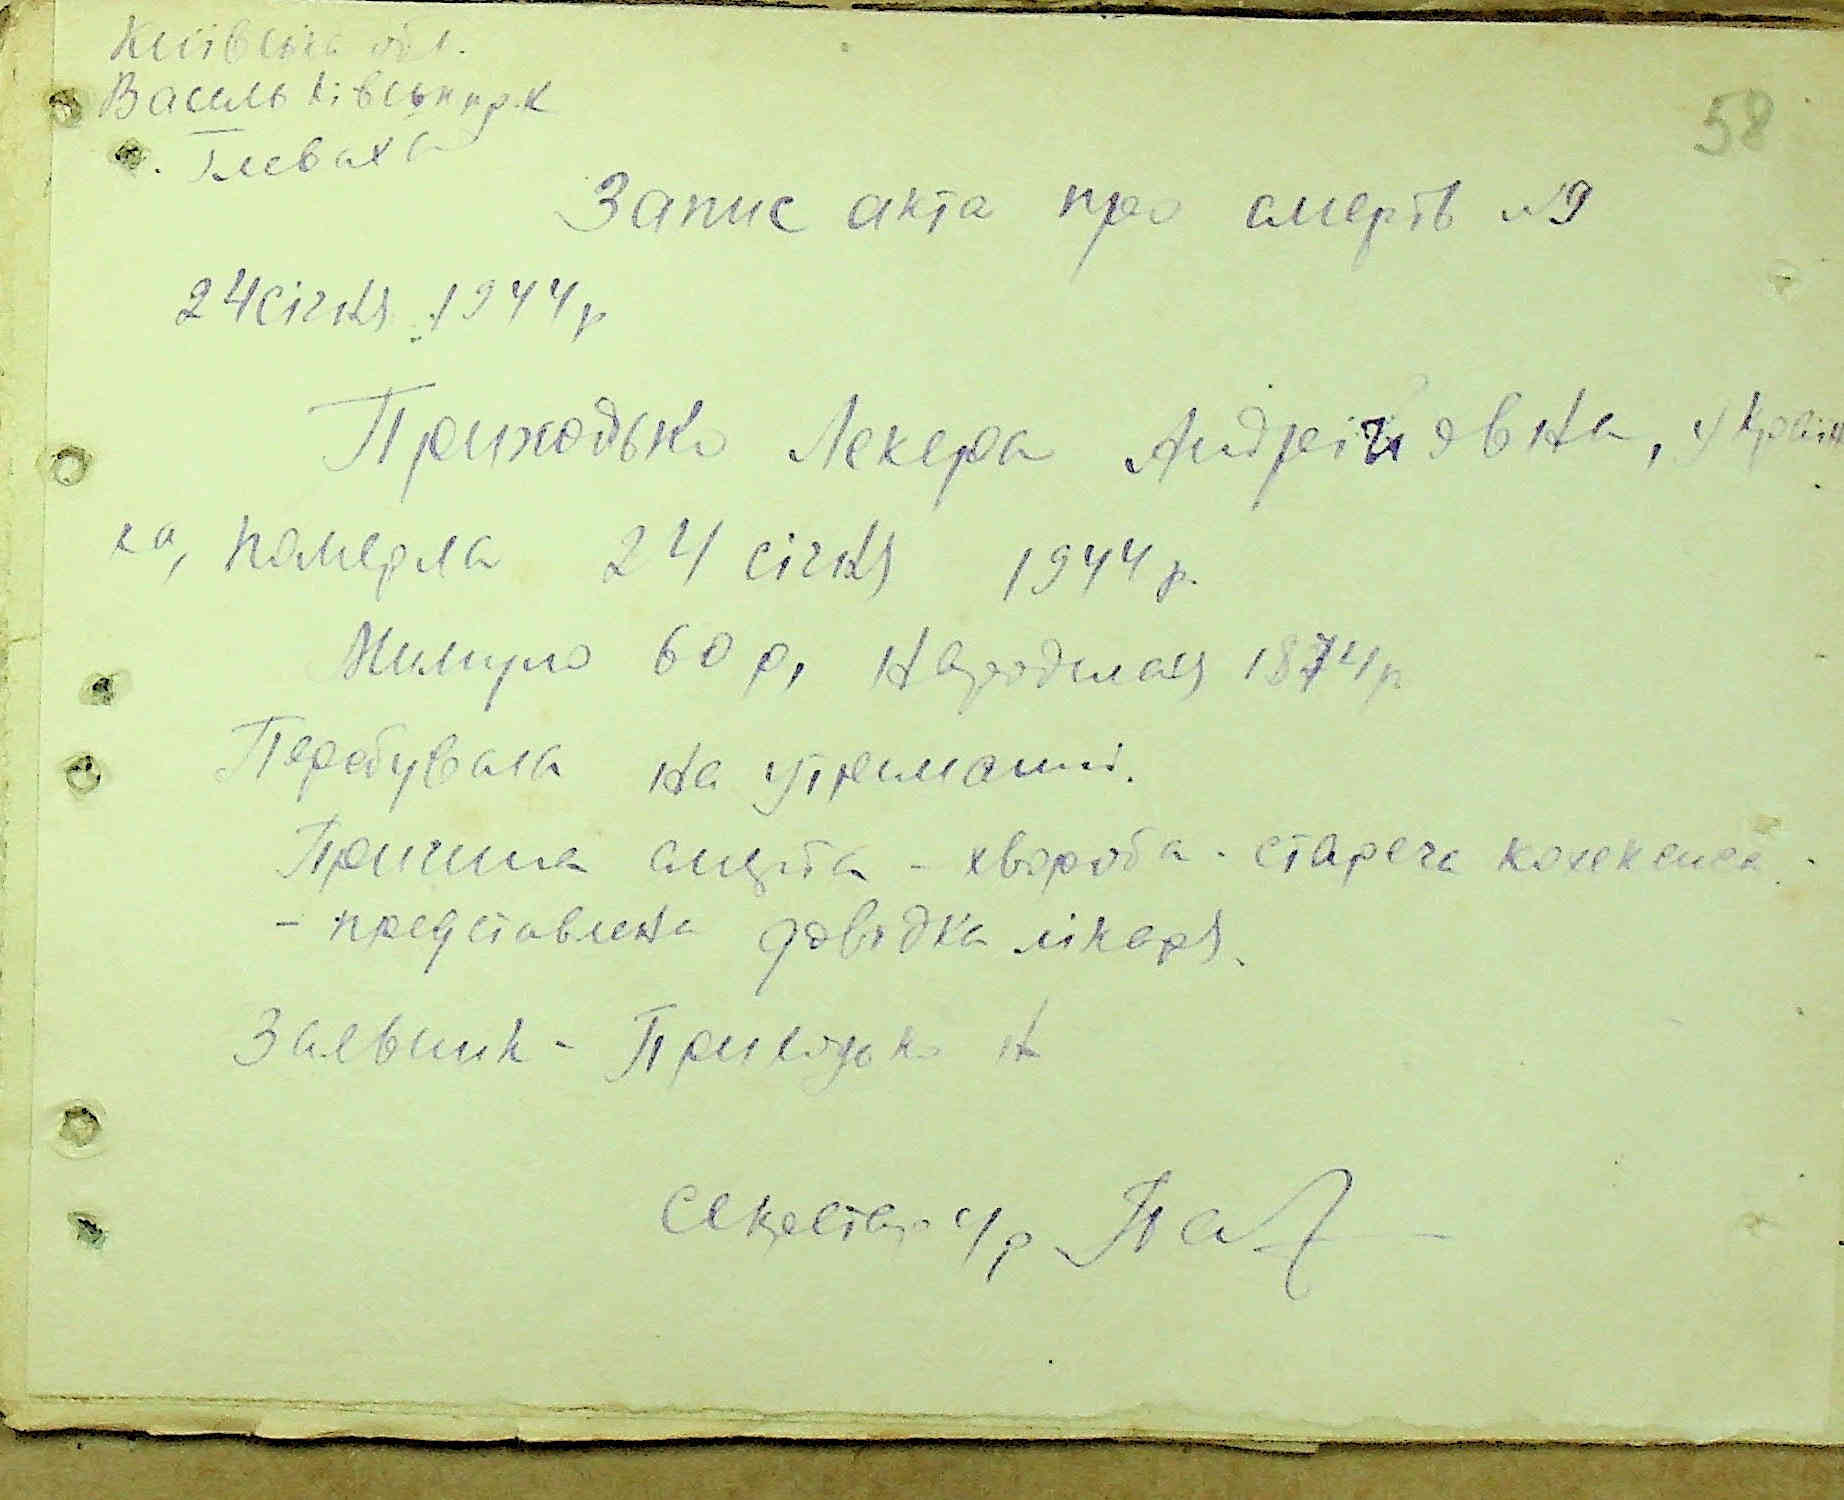 Київська обл.
Васильківський р-к
с. Глеваха
58
Запис акта про смерть №9
24 січня 1944 р
Приходько Лекера Андріївна, україн
ка, померла 24 січня 1944 р.
Минуло 60 р, народилася 1874 р
Перебувала на утриманні.
Причина смерти - хвороба - стареча
- представлена довідка лікаря.
Заявник - Приходько Н
Секретар с/р